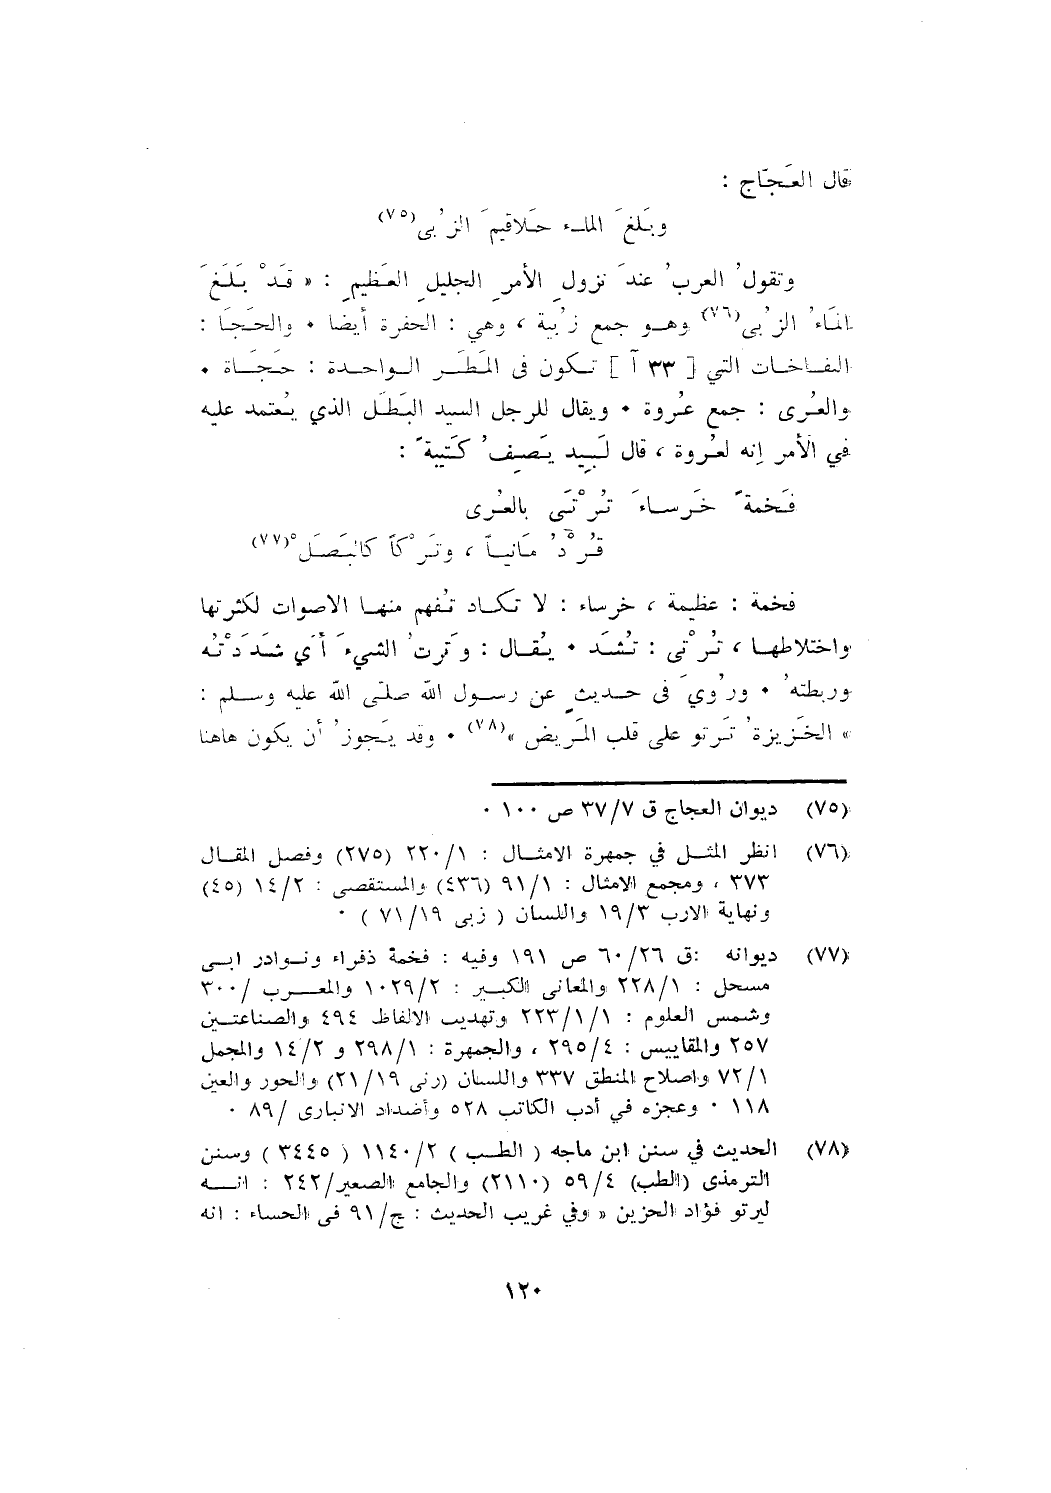 قال العَجّاج :
وبَلَغَ الماء حَلاقيمَ الزُبى(٧٥)
وتقولُ العربُ عندَ نزولِ الأمرِ الجليلِ العَظيمِ : « قَدْ بَلَغَ
الماءُ الزُبى(٧٦) وهـو جمع زُبية ، وهي : الحفرة أيضا ٠ والحَجَا :
النفاخات التي [ ٣٣ آ ] تكون في المَطَر الواحدة : حَجَاة ٠
والعُرى : جمع عُروة ٠ ويقال للرجل السيد البَطَل الذي يُعتمد عليه
في الأمر إنه لعُروة ، قال لَبيد يَصِفُ كَتيبةً :
فَخمةً خَرساءَ تُرْتَى بالعُرى
قُرْدُمَانياً ، وتَرْكاً كالبَصَلْ(٧٧)
فخمة : عظيمة ، خرساء : لا تكاد تُفهم منها الاصوات لكثرتها
واختلاطها ، تُرْتى : تُشَد ٠ يُقال : وَتَرتُ الشيءَ أَي شَدَدْتُه
وربطته ُ ٠ ورُوي َ في حديثٍ عن رسول الله صلّى الله عليه وسلم :
« الخَزيزةُ تَرتو على قلب المَريض »(٧٨) ٠ وقد يَجوزُ أن يكون هاهنا
(٧٥) ديوان العجاج ق ٣٧/٧ ص ١٠٠ ٠
(٧٦) انظر المثل في جمهرة الامثال : ٢٢٠/١ (٢٧٥) وفصل المقال
٣٧٣ ، ومجمع الامثال : ٩١/١ (٤٣٦) والمستقصى : ١٤/٢ (٤٥)
ونهاية الارب ١٩/٣ واللسان ( زبى ٧١/١٩ ) ٠
(٧٧) ديوانه :ق ٦٠/٢٦ ص ١٩١ وفيه : فخمة ذفراء ونوادر ابى
مسحل : ٢٢٨/١ والمعانى الكبير : ١٠٢٩/٢ والمعرب /٣٠٠
وشمس العلوم : ٢٢٣/١/١ وتهذيب الالفاظ ٤٩٤ والصناعتين
٢٥٧ والمقاييس : ٢٩٥/٤ ، والجمهرة : ٢٩٨/١ و ١٤/٢ والمجمل
٧٢/١ واصلاح المنطق ٣٣٧ واللسان (رنى ٢١/١٩) والحور والعين
١١٨ ٠ وعجزه في أدب الكاتب ٥٢٨ وأضداد الانبارى /٨٩ ٠
(٧٨) الحديث في سنن ابن ماجه ( الطب ) ١١٤٠/٢ ( ٣٤٤٥ ) وسنن
الترمذى (الطب) ٥٩/٤ (٢١١٠) والجامع الصغير/٢٤٢ : انه
ليرتو فؤاد الحزين » وفي غريب الحديث : ج/٩١ فى الحساء : انه
١٢٠